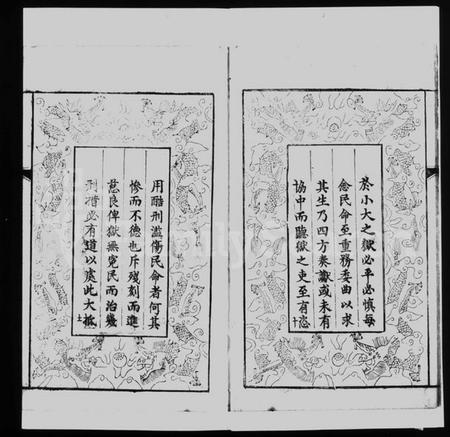 於小大之獄必平必慎每
念民命至重務委曲以求
其生乃四方奏讞或未有
協中而聽獄之吏至有恣
十
用酷刑濫傷民命者何其
慘而不德也斥殘刻而進
慈良俾獄無冤民而治幾
刑措必有道以處此大抵
十一